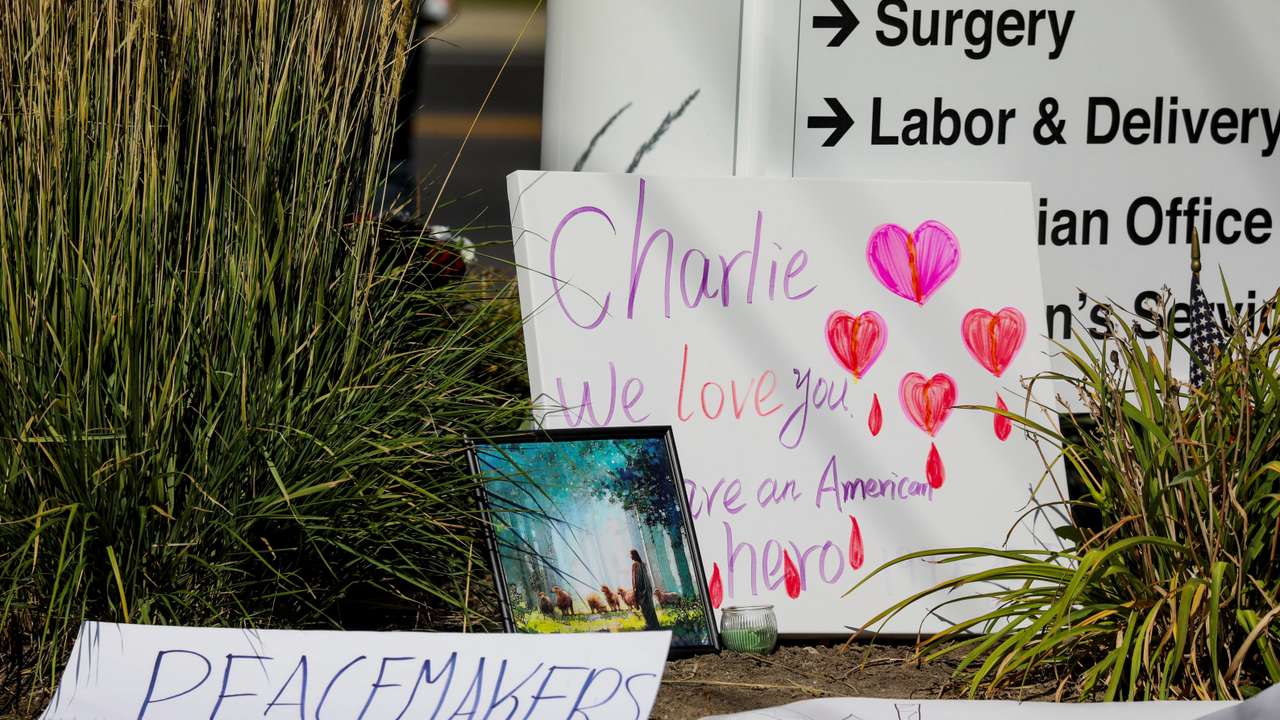 Surgery
Labor & Delivery
ian Office
n's Servi
Charlie
We love you.
are an American
hero
PEACEMAKERS